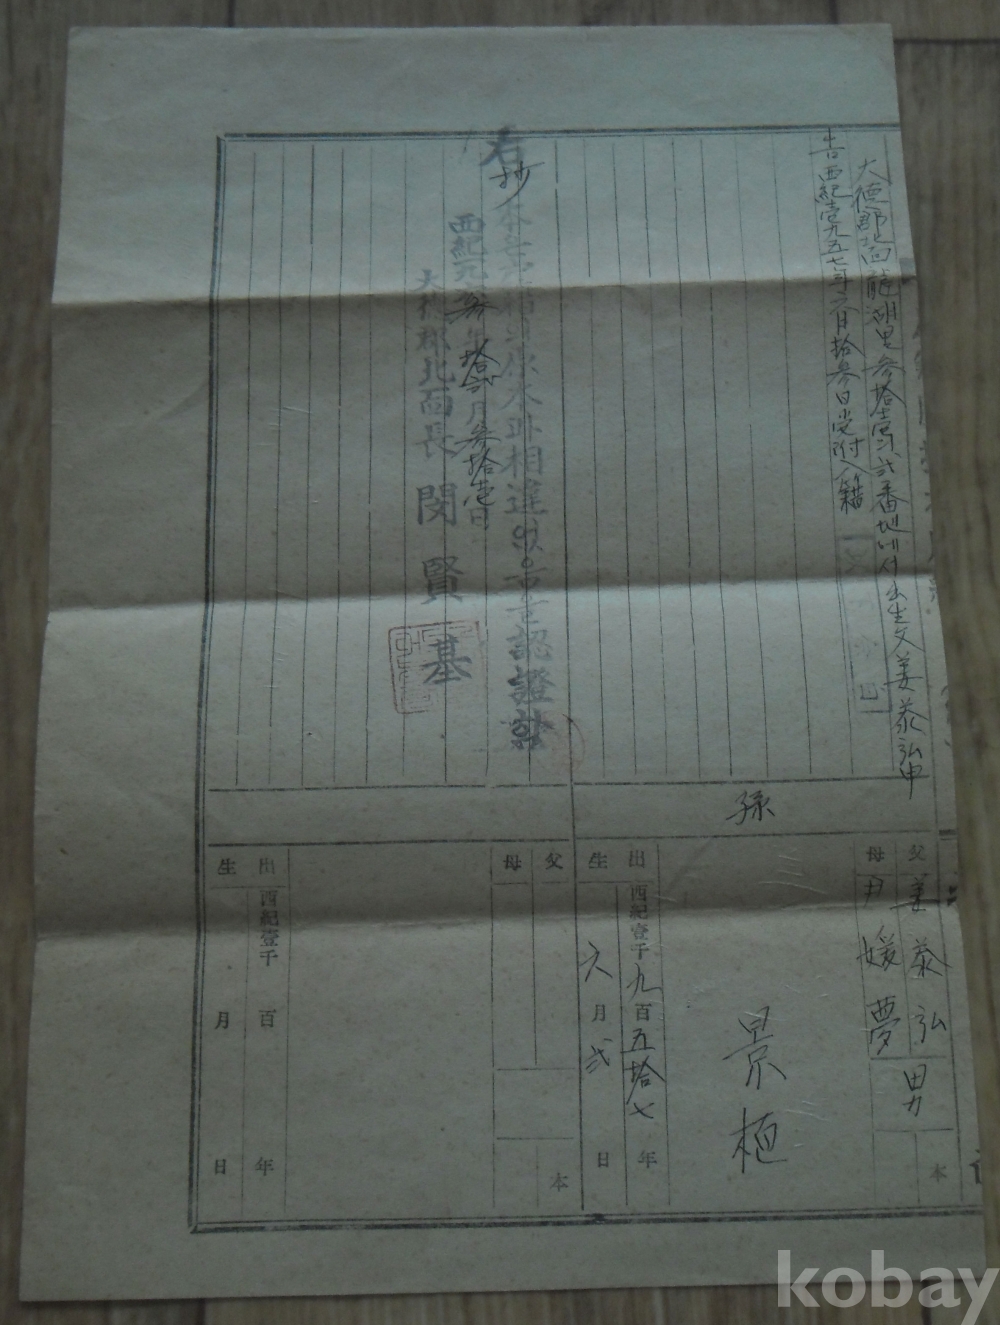 大德郡北面龍湖里參拾壹의貳番地에서出生父姜泰弘申
告西紀壹九五七年六月拾參日受附入籍
孫
父 姜泰弘
母 尹媛夢
男
本
景植
出生
西紀壹千九百五拾七年
六月貳日
右抄本은戶籍의原本과相違없음을認證함
西紀元 年拾貳月參拾壹日
大德郡北面長 閔賢基
父
母
本
出生
西紀壹千 百 年
月 日
kobay